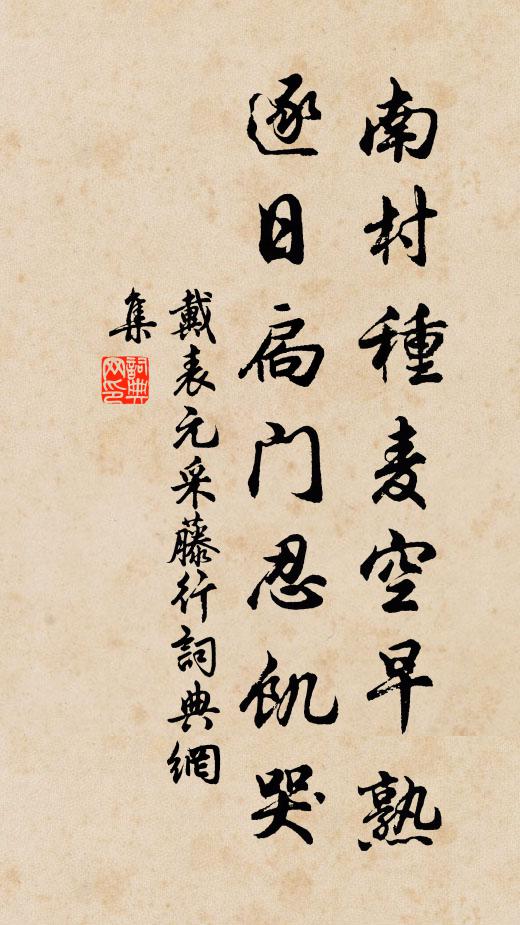 南村種麦空早熟
逐日扃門忍飢哭
戴表元采藤行詞典網
集
詞典网印